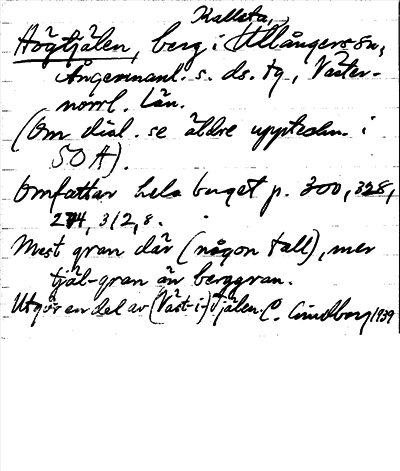 Kallsta,
Högtjälen, berg i Ullångers sn,
Ångermanl. s. ds. tg, Väster-
norrl. län.
(Om dial. se äldre uppteckn. i
SOA).
Omfattar hela berget p. 300, 328,
274, 312, 8.
Mest gran där (någon tall), mer
tjäl-gran än berggran.
Utgör en del av (Väst-i-)Tjälen. C. Lindberg 1939